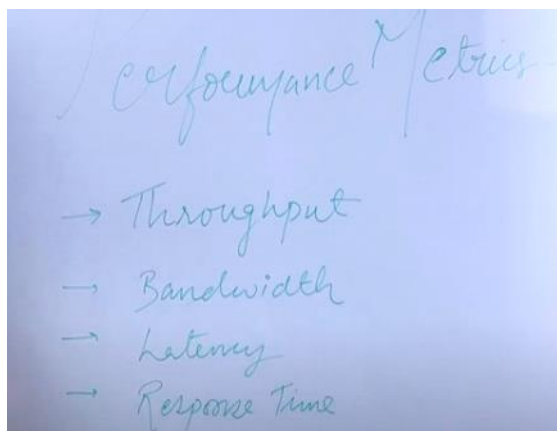 Performance Metrics
→ Throughput
→ Bandwidth
→ Latency
→ Response Time